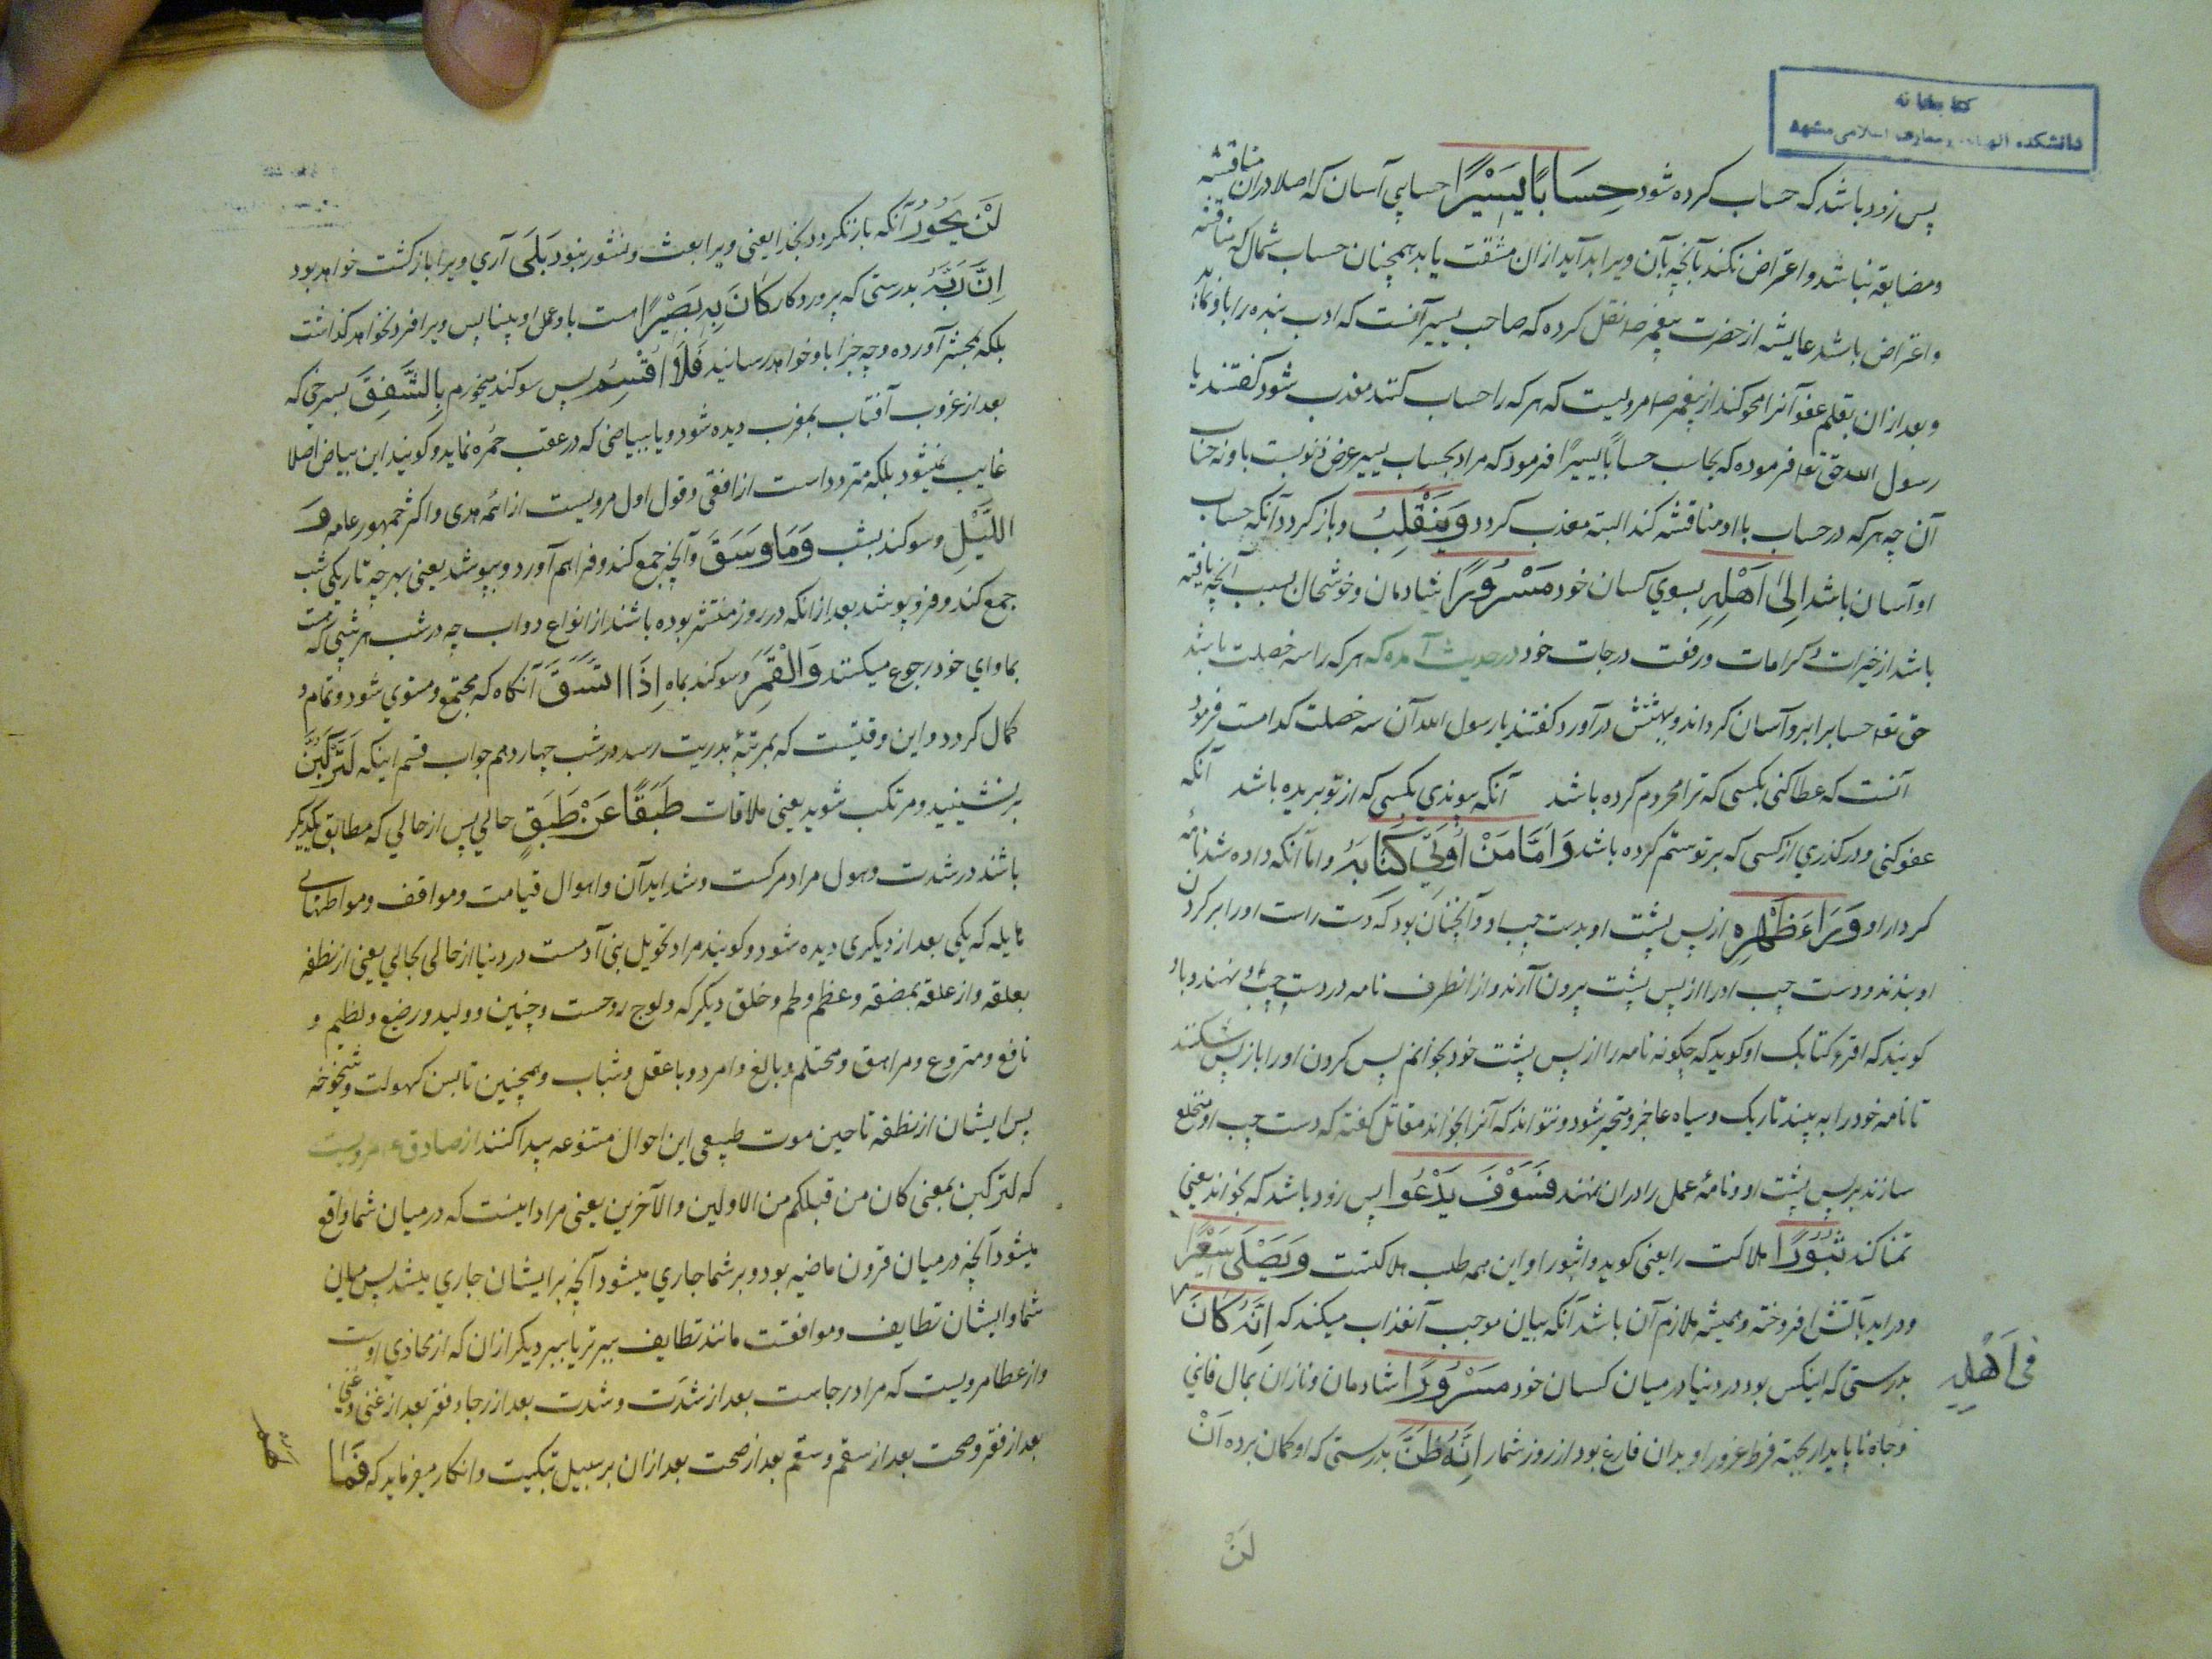 کتابخانه
دانشکده الهیات و معارف اسلامی مشهد
پس زود باشد که حساب کرده شود حِسَابًا یَسِیْرًا حسابی آسان که اصلا دران مناقشه
ومضایقه نباشد واعتراض نکند بآنچه بآن ویرا بدآید ازان مشقت یابد همچنان حساب شمال که مناقشه
واعتراض باشد عایشه از حضرت پیغمبر ص نقل کرده که صاحب یسیر آنست که ادب بنده را باو
وبعد ازان بقلم عفو آنرا محو کند از پیغمبر ص مرویست که هر که را حساب کنند معذب شود گفتند یا
رسول الله حق تعا فرموده که یحاسب حسابًا یسیرًا فرمود که مراد بحساب یسیر عرض ذنوبست باو نه حساب
آن چه هر که در حساب با او مناقشه کند البته معذب گردد وَیَنْقَلِبُ و باز گردد آنکه حساب
او آسان باشد اِلیٰ اَهْلِهِ بسوی کسان خود مَسْرُوْرًا شادمان وخوشحال بسبب آنچه یافته
باشد از خیرات و کرامات ورفعت درجات خود در حدیث آمده که هر که را سه خصلت باشد
حق تعا حسابرا برو آسان گرداند و ببهشتش درآورد گفتند یا رسول الله آن سه خصلت کدامست فرمود
آنست که عطا کنی بکسی که ترا محروم کرده باشد آنکه پیوندی بکسی که از تو بریده باشد آنکه
عفو کنی و درگذری از کسی که بر تو ستم کرده باشد وَاَمَّا مَنْ اُوْتِیَ کِتَابَهُ واما آنکه داده شد نامه
کردار او وَرَاءَ ظَهْرِهِ از پس پشت او بدست چپ او وآنچنان بود که دست راست او را بر گردن
او بندند و دست چپ او را از پس پشت بیرون آرند و از انطرف نامه در دست چپ او نهند و باو
گویند که اقرء کتابک او گوید که چگونه نامه را از پس پشت خود بخوانم پس گردن او را باز پس شکنند
تا نامه خود را به بیند تاریک و سیاه عاجز و متحیر شود و نتواند که آنرا بخواند مقاتل گفته که دست چپ او منخلع
سازند بر پس پشت او و نامه عمل را دران نهند فَسَوْفَ یَدْعُوا پس زود باشد که بخواند یعنی
تمنا کند ثُبُوْرًا هلاکت را یعنی گوید واثبورا و این همه طلب هلاکتست وَیَصْلَی سَعِیْرًا
و در آید بآتش افروخته و همیشه ملازم آن باشد آنکه بیان موجب آنعذاب میکند که اِنَّهُ کَانَ
فی اَهْلِهِ
بدرستی که اینکس بود در دنیا در میان کسان خود مَسْرُوْرًا شادمان و نازان بمال فانی
وجاه ناپایدار بجهة فرط غرور او بدان فارغ بود از روز شمار اِنَّهُ ظَنَّ بدرستی که او گمان برده اَنْ
لَنْ
لَنْ یَحُوْرَ آنکه باز نگردد بخدا یعنی ویرا بعث و نشور نبود بَلَی آری ویرا بازگشت خواهد بود
اِنَّ رَبَّهُ بدرستی که پروردگار کَانَ بِهِ بَصِیْرًا هست باو عمل او بینا پس ویرا فرو نخواهد گذاشت
بلکه بمحشر آورده و چه جزا باو خواهد رسانید فَلَا اُقْسِمُ پس سوگند میخورم بِالشَّفَقِ بسرخی که
بعد از غروب آفتاب بمغرب دیده شود و یا ببیاضی که در عقب حمره نماید و گویند این بیاض اصلا
غایب نمیشود بلکه متردد است از افقی و قول اول مرویست از ائمه هدی و اکثر جمهور عامه وَ
اللَّیْلِ و سوگند بشب وَمَا وَسَقَ و آنچه جمع کند و فراهم آورد و بپوشد یعنی بهر چه تاریکی شب
جمع کند و فرو پوشد بعد ازانکه در روز منتشر بوده باشند از انواع دواب چه در شب هر شیئی که هست
بماوای خود رجوع میکند وَالْقَمَرِ و سوگند بماه اِذَا اتَّسَقَ آنگاه که مجتمع و مستوی شود و تمام و
کمال گردد و این وقتیست که بمرتبهٔ بدریت رسد در شب چهاردهم جواب قسم اینکه لَتَرْکَبُنَّ
برنشینید و مرتکب شوید یعنی ملاقات طَبَقًا عَنْ طَبَقٍ حالی پس از حالی که مطابق یکدیگر
باشند در شدت و هول مراد مرگست و شداید آن و اهوال قیامت و مواقف و مواطنهای
هایله که یکی بعد از دیگری دیده شود و گویند مراد تحویل بنی آدمست در دنیا از حالی بحالی یعنی از نطفه
بعلقه و از علقه بمضغه و عظم و لحم و خلق دیگر که ولوج روحست و جنین و ولید و رضیع و فطیم و
نافع و مترعرع و مراهق و محتلم و بالغ و امرد و با عقل و شباب و همچنین تا بسن کهولت و شیخوخه
پس ایشان از نطفه تا حین موت طبیعی این احوال متنوعه پیدا کنند از صادق ع مرویست
که لترکبن بمعنی کان من قبلکم من الاولین والآخرین یعنی مراد اینست که در میان شما واقع
میشود آنچه در میان قرون ماضیه بود و بر شما جاری میشود آنچه بر ایشان جاری میشد پس میان
شما و ایشان تطایف و موافقت مانند تطایف
و از عطا مرویست که مراد رجاست بعد از شدت و شدت بعد از رجا و فقر بعد از غنی و غنی
بعد از فقر و صحت بعد از سقم و سقم بعد از صحت بعد ازان بر سبیل تبکیت و انکار میفرماید که فَمَا